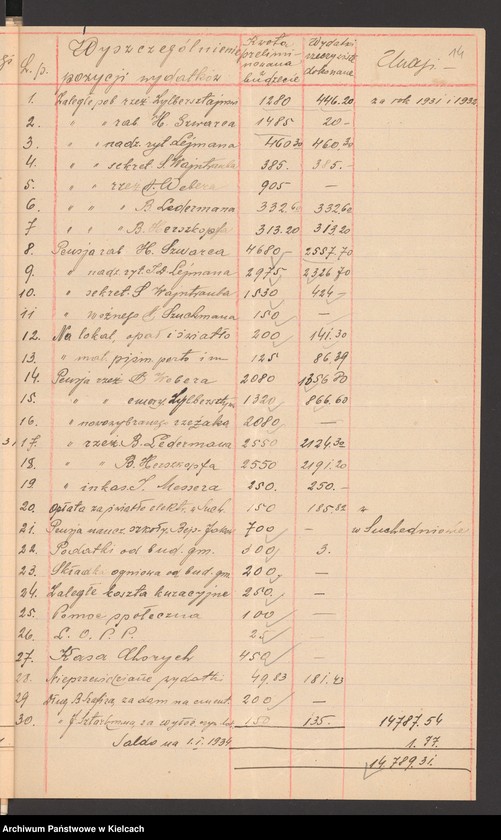 14
L.p. Wyszczególnienie pozycji wydatków Kwota prelimi- nowana w budżecie Wydatki rzeczywiście dokonane Uwagi
1. Zaległe pob. rzez. Zylbersztajnowi 1280 446.20 za rok 1931 i 1932
2. " " rab. H. Szwarca 1485 20.-
3. " " nadz. ryt. Lejmana 460 30 460.30
4. " " sekret. S. Wajntrauba 385. 385.-
5. " " rzez. Webera 905 —
6. " " " B. Ledermana 332.60 332.60
7 " " " B. Herszkopfa 313.20 313.20
8. Pensja rab. H. Szwarca 4680 2557.70
9. " nadz. ryt. Lejmana 2975 2326.70
10. " sekret. S. Wajntrauba 1530 424
11 " woźnego Szuchmana 150 —
12. Na lokal, opał i światło 200 141.30
13. " mat. piśm. porto i in. 125 86.39
14. Pensja rzez. Webera 2080 1356.80
15. " " emery. Zylbersztajn 1320 866.60
16. " nowowybranego rzezaka 2080 —
17. " rzez. B. Ledermana 2550 2124.32
18. " " B. Herszkopfa 2550 2191.20
19. " inkas. J. Messera 250. 250.-
20. Opłata za światło elektr. w Such. 150 185.82
21. Pensja naucz. szkoły Bejs-Jakow 700 — w Suchedniowie
22. Podatki od bud. gm. 300 3.
23. Składki ogniowa od bud. gm. 200 —
24. Zaległe koszta kuracyjne 250. —
25. Pomoc społeczna 100 —
26. L. O. P. P. 25
27. Kasa Chorych 450 —
28. Nieprzewidziane wydatki 49.83 181.43
29 Dług B. za dom na cment. 200 —
30. " J. za wyłoż. 150 135. 14787.54
Saldo na 1.I.1934 1.77.
14789.31.
Archiwum Państwowe w Kielcach